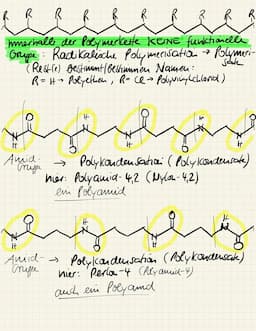 R R R R R R R R
innerhalb der Polymerkette KEINE funktionelle
Gruppe: Radikalische Polymerisation → Polymeri-
sate
(Rest(e) bestimmt/bestimmen Namen:
R = H → Polyethen, R = Cl → Polyvinylchlorid)
Amid- → Polykondensation (Polykondensate)
Gruppe hier: Polyamid-4,2 (Nylon-4,2)
ein Polyamid
Amid- → Polykondensation (Polykondensate)
Gruppe hier: Perlon-4 (Polyamid-4)
auch ein Polyamid